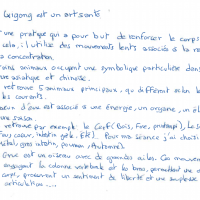 Qigong est un art santé
une pratique qui a pour but de renforcer le corps
cela, il utilise des mouvements lents associés à la re
a concentration.
ains animaux occupent une symbolique particulière dans
ure asiatique et chinoise.
retrouve 5 animaux principaux, qui diffèrent selon l
les courants.
d'eux est associé à une énergie, un organe, un él
une saison.
retrouve par exemple le Cerf (Bois, Foie, printemps), le S
Feu, coeur, été). Pour ma séance j'ai choisi
gros intestin, poumon / Automne).
Grue est un oiseau avec de grandes ailes. Ces mouvem
engagent la colonne vertébrale et les bras, permettent une
corps, procurent un sentiment de liberté et une souplesse
articulation....